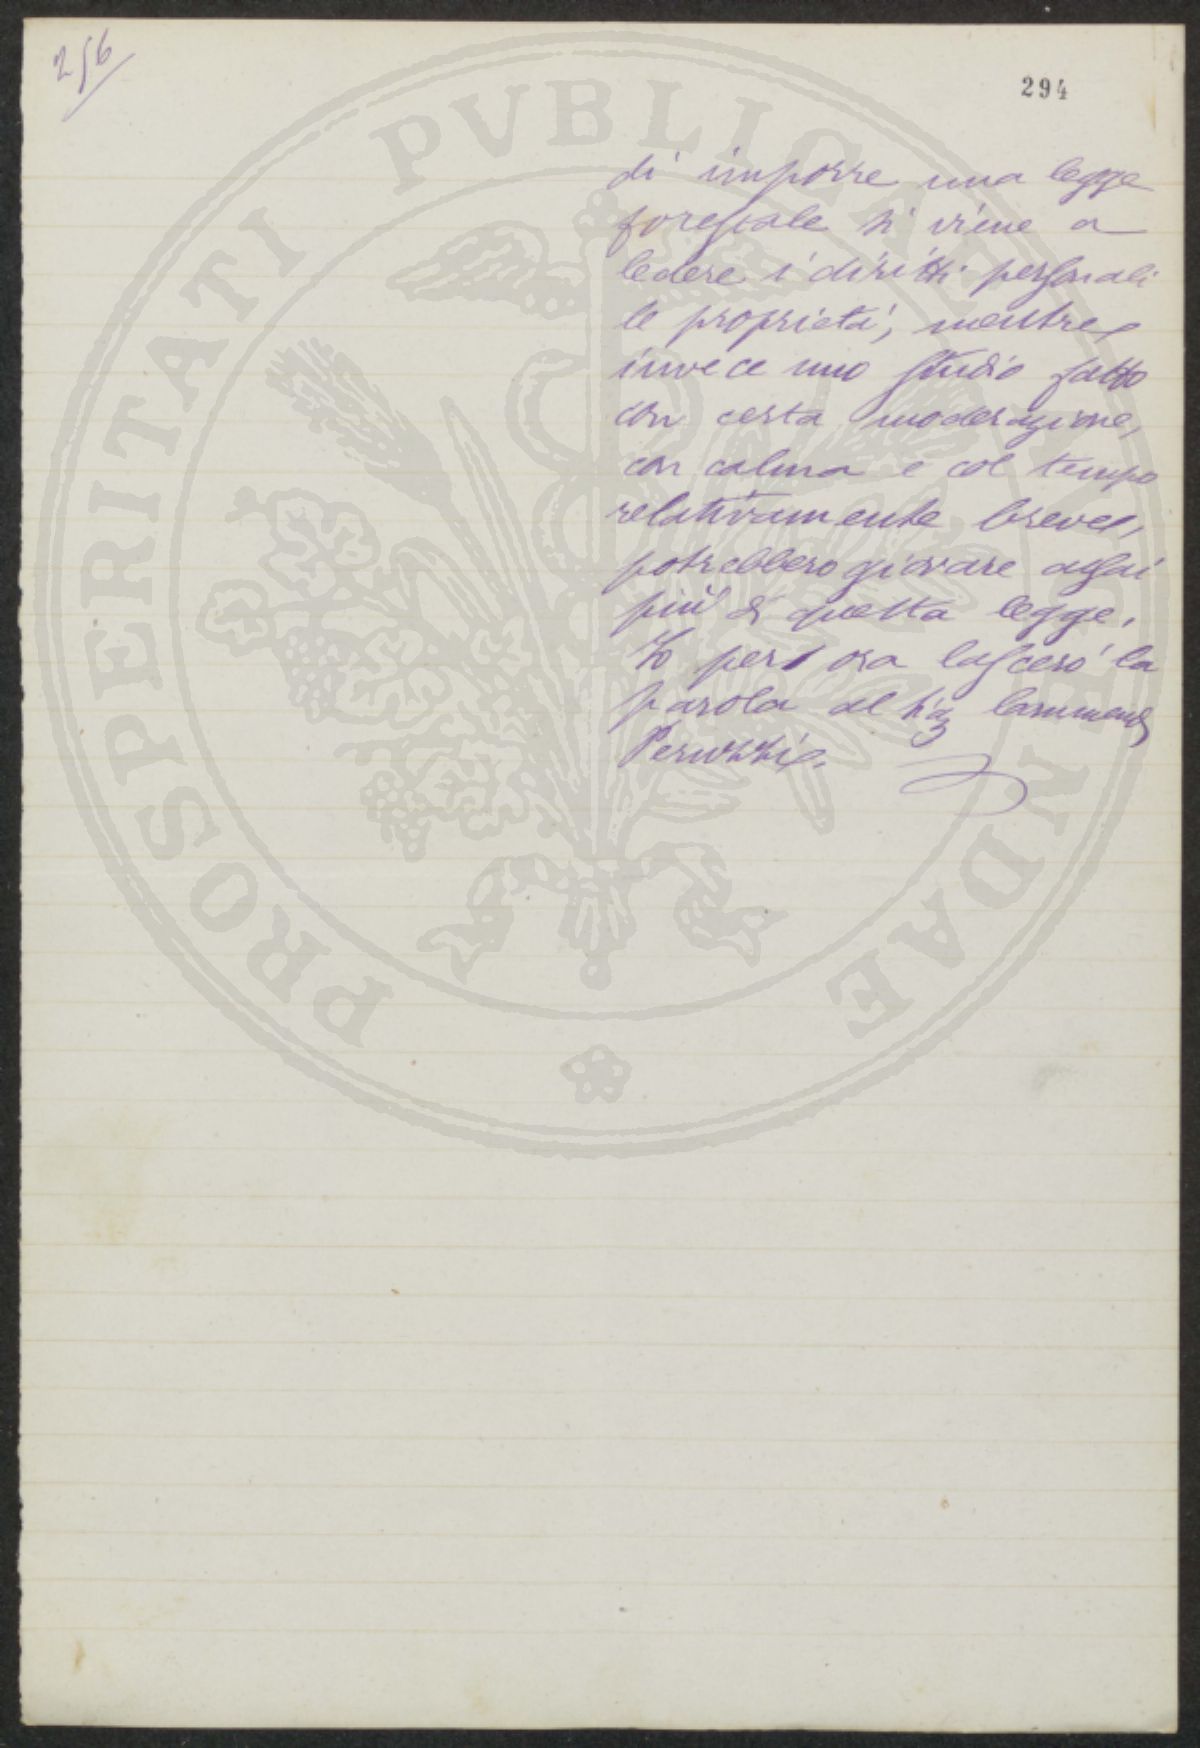 256
294
di imporre una legge
forestale si viene a
ledere i diritti personali
le proprietá, mentre
invece uno studio fatto
con certa moderazione,
con calma e col tempo
relativamente breve,
potrebbero giovare assai
più di questa legge.
Io per ora lasceró la
parola al Sig
Peruzzi.
PROSPERITATI PVBLICAE AVGENDAE